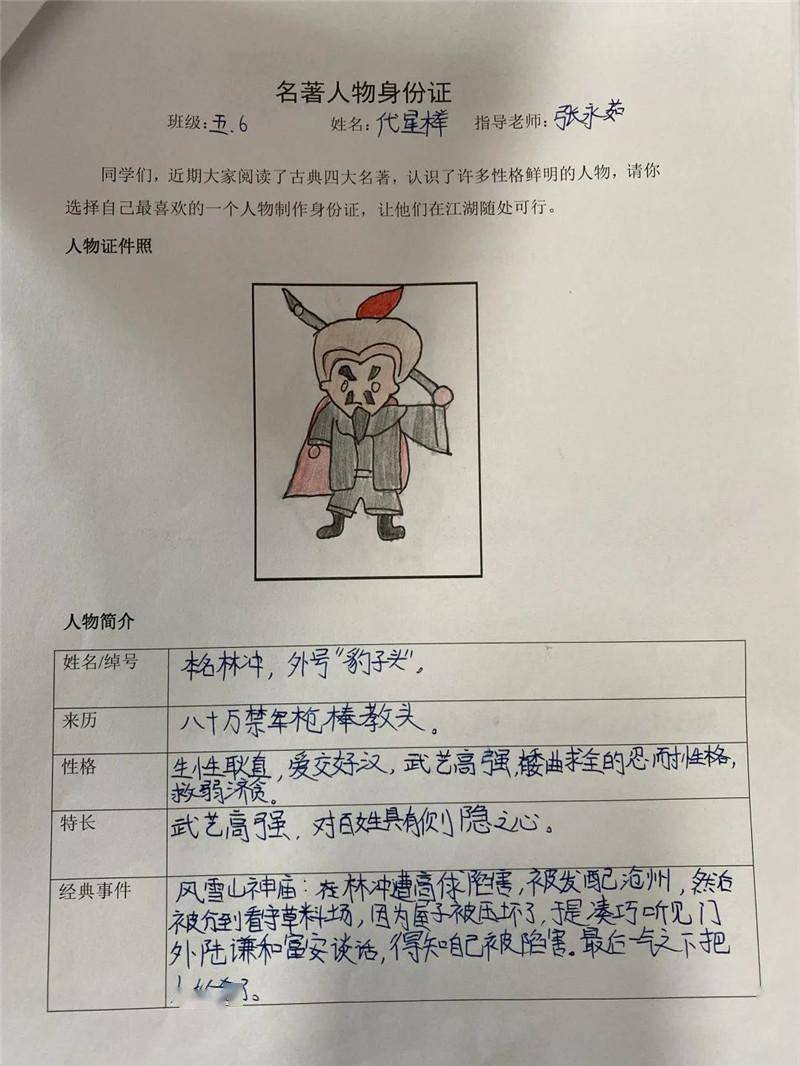 名著人物身份证
班级：五.6 姓名：代星樟 指导老师：张永茹
同学们，近期大家阅读了古典四大名著，认识了许多性格鲜明的人物，请你
选择自己最喜欢的一个人物制作身份证，让他们在江湖随处可行。
人物证件照
人物简介
姓名/绰号 本名林冲，外号“豹子头”。
来历 八十万禁军枪棒教头。
性格 生性耿直，爱交好汉，武艺高强，委曲求全的忍耐性格，
救弱济贫。
特长 武艺高强，对百姓具有恻隐之心。
经典事件 风雪山神庙：在林冲遭高俅陷害，被发配沧州，然后
被分到看守草料场，因为屋子被压坏了，于是凑巧听见门
外陆谦和富安谈话，得知自己被陷害。最后一气之下把
了。